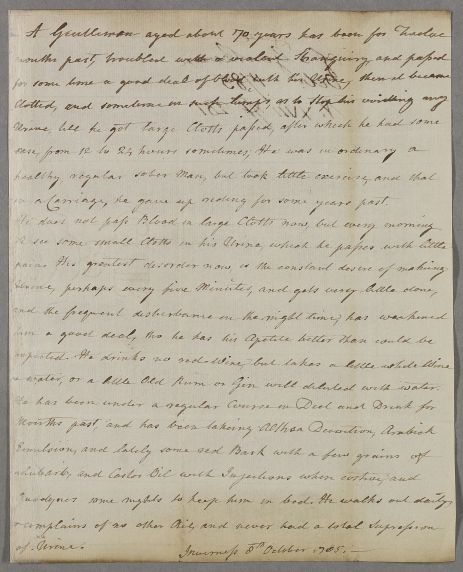 A Gentleman aged about 70 years has been for Twelve
months past, troubled with a violent Stranguary, and passed
for some time a good deal of blood with his Urine, then it became
Clotted, and sometimes in such lumps as to stop his voiding any
Urine till he got large Clotts passed, after which he had some
ease, from 12 to 24 hours sometimes, He was in ordinary a
healthy regular sober Man, but took little exercise, and that
in a Carriage, he gave up riding for some years past.
He does not pass Blood in large Clotts now, but every morning
I see some small Clotts in his Urine, which he passes with little
pain. His greatest disorder now, is the constant desire of making
Urine, perhaps every five Minutes, and gets very little done,
and the frequent disturbance in the night time, has weakened
him a good deal, tho he has his Apetite better than could be
expected. He drinks no red Wine, but takes a little white Wine
& water, or a little Old Rum or Gin well diluted with water.
He has been under a regular Course in Diet and Drink for
Months past and has been taking Althea Decoction, Arabick
Emulsion, and lately some red Bark with a few grains of
rhubarb, and Castor Oil with Injections when costive, and
Anodynes some nights to keep him in bed. He walks out daily,
& complains of no other Ail, and never had a total Supression
of Urine.
Inverness 8th October 1785.